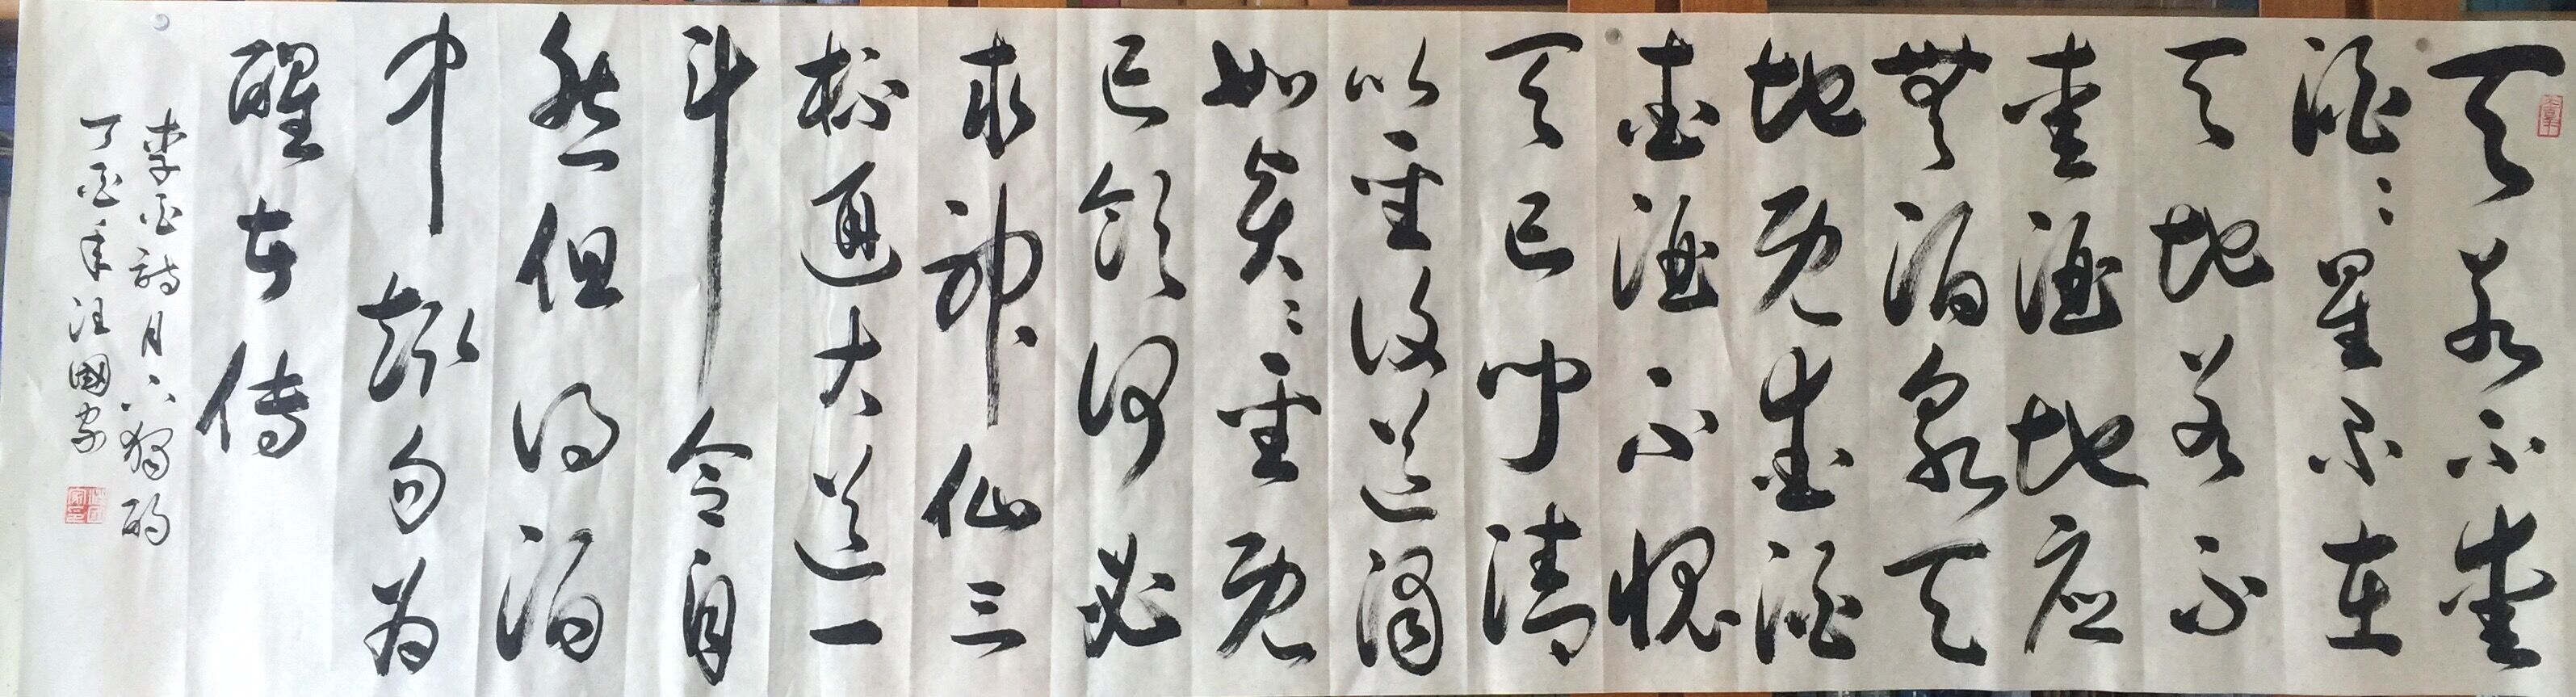 天若不爱
酒々星不在
天地若不
爱酒地应
無酒泉天
地既爱酒
爱酒不愧
天已闻清
比圣復道濁
如贤々圣既
已飲何必
求神仙三
杯通大道一
斗合自
然但得酒
中趣勿为
醒者传
李白詩月下獨酌
丁酉年汪國家